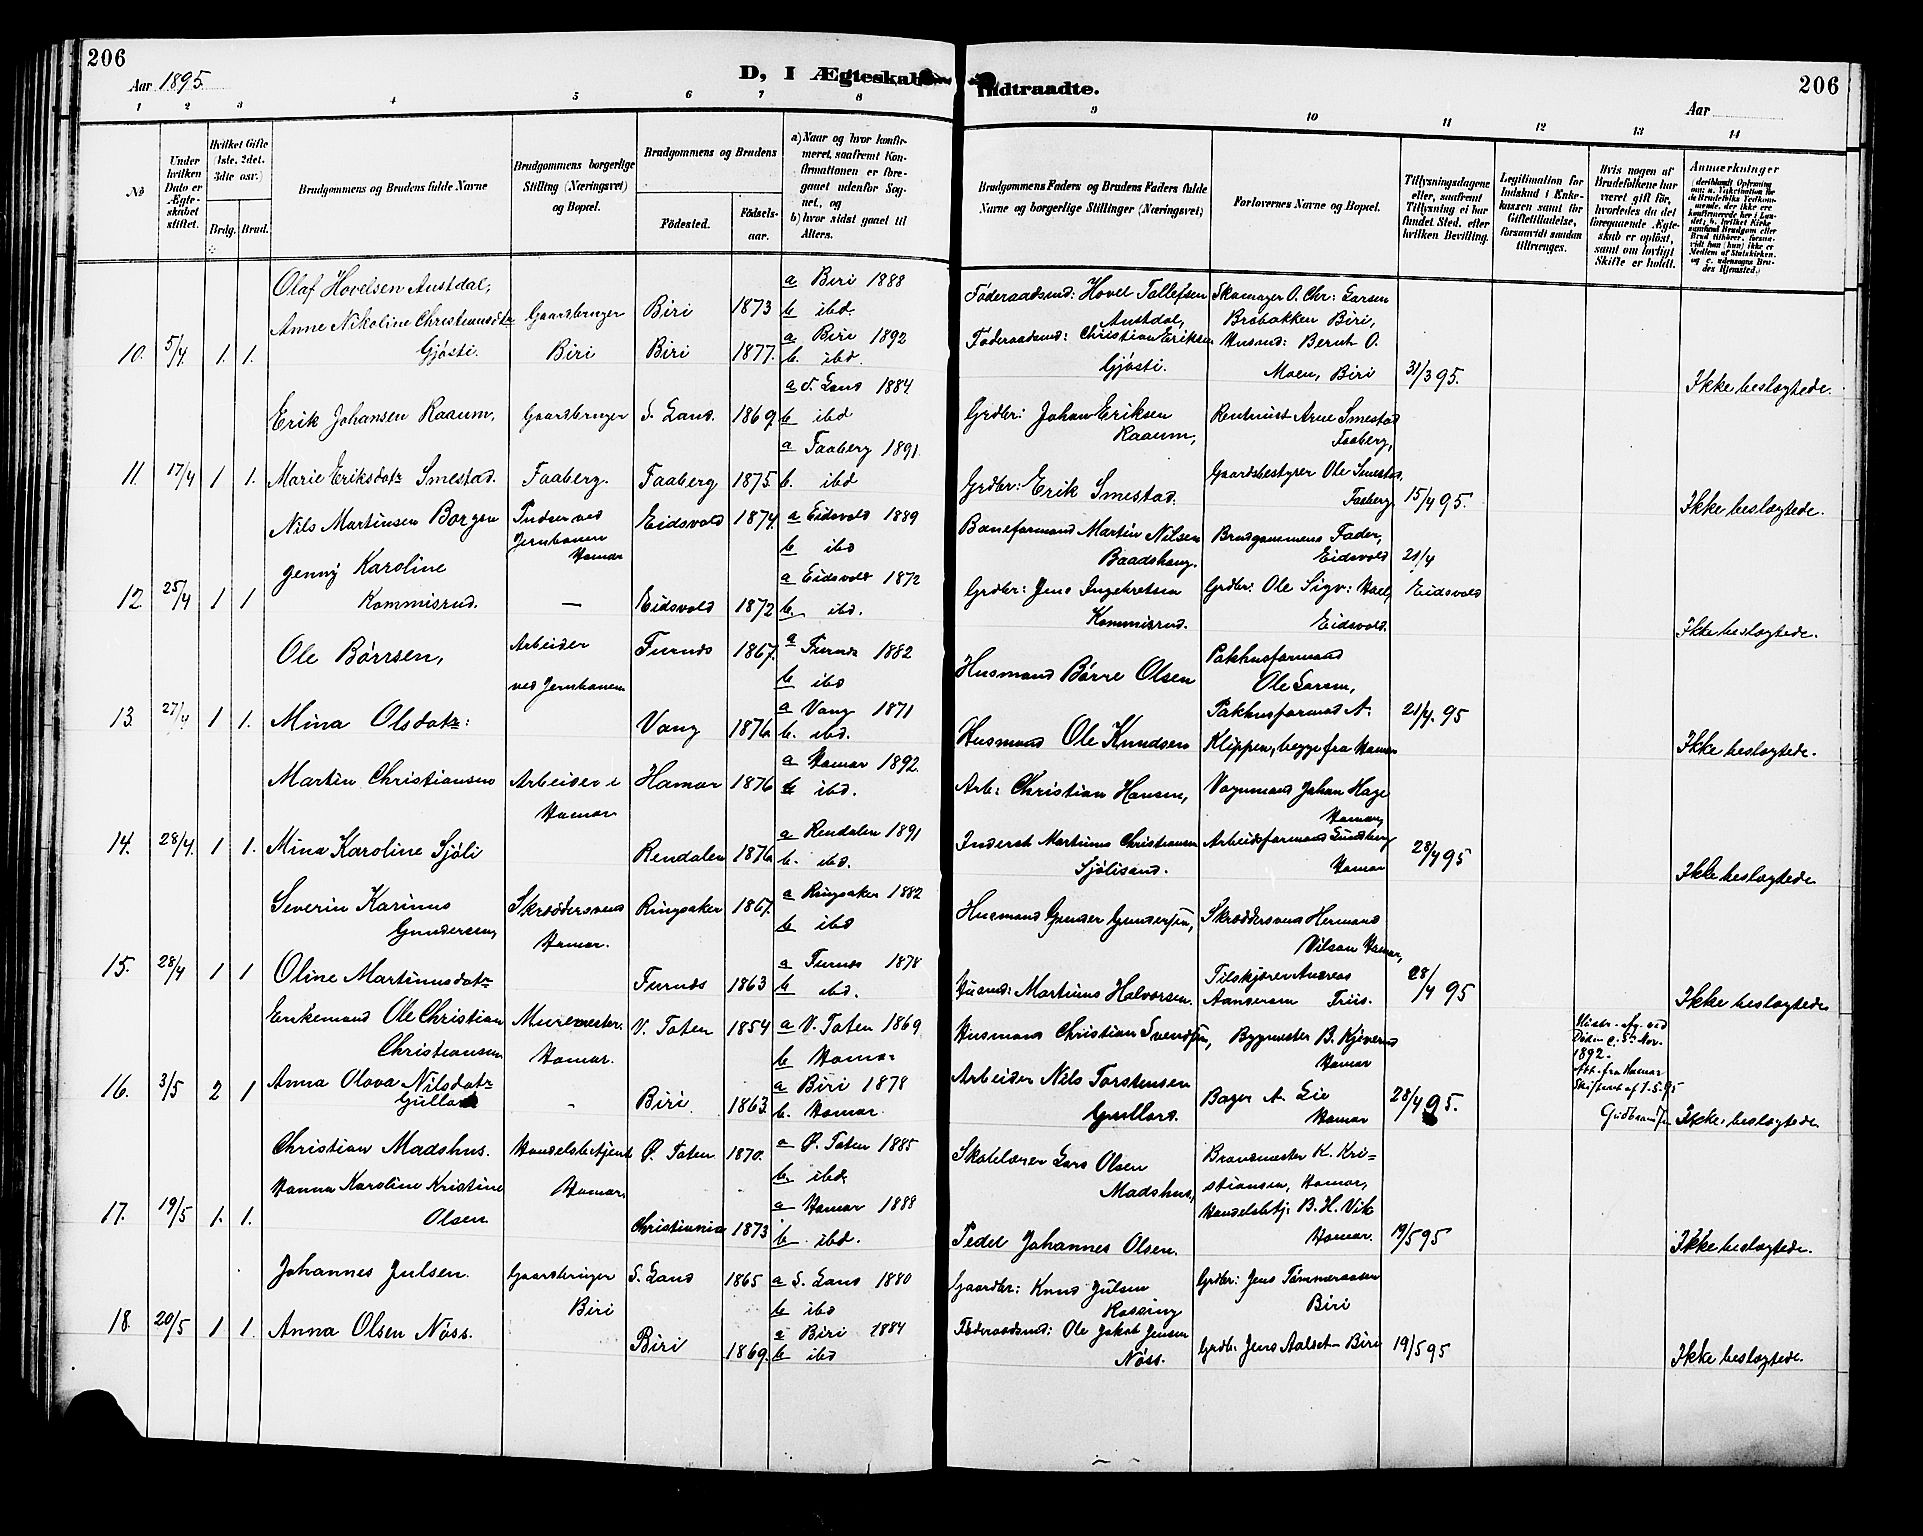 206
Aar 1895.
D, I Ægteskab
Indtraadte.
206
Aar
1 2 3 4 5 6 7 8 9 10 11 12 13 14
No
Under hvilken Dato er Ægteskabet stiftet.
Hvilket Gifte (1ste, 2det, 3die osv.)
Brdg. Brud.
Brudgommens og Brudens fulde Navne
Brudgommens borgerlige Stilling (Næringsvei) og Bopæl.
Brudgommens og Brudens
Fødested.
Fødselsaar.
a) Naar og hvor konfirmeret, saafremt Konfirmationen er foregaaet udenfor Sognet, og
b) hvor sidst gaaet til Alters.
Brudgommens Faders og Brudens Faders fulde Navne og borgerlige Stillinger (Næringsvei)
Forlovernes Navne og Bopæl.
Tillysningsdagene eller, saafremt Tillysning ei har fundet Sted, efter hvilken Bevilling.
Legitimation for Indskud i Enkekassen samt for Giftetilladelse, forsaavidt saadan tiltrænges.
Hvis nogen af Brudefolkene har været gift før, hvorledes da det foregaaende Ægteskab er opløst, samt om lovligt Skifte er holdt.
Anmærkninger
10. 5/4 1. 1.
Olaf Hovelsen Austdal,
Anne Nikoline Christiansdtr
Gjösti.
Gaardbruger
Biri
Biri 1873
Biri 1877.
a Biri 1888
b ibd.
a Biri 1892
b ibd.
Föderaadsmd: Hovel Tollefsen
Austdal,
Föderaadsmd: Christian Eriksen
Gjösti.
Skomager O. Chr: Larsen
Brobakken Biri,
Husmd: Bernt O.
Moen, Biri
31/3 95.
Ikke beslægtede.
11. 17/4 1 1.
Erik Johansen Raaum,
Marie Eriksdatr Smestad.
Gaardbruger
Faaberg.
S. Land. 1869.
Faaberg 1875.
a S. Land 1884.
b ibd
a Faaberg 1891.
b. ibd
Grdbr: Johan Eriksen
Raaum,
Grdbr: Erik Smestad.
Rentenist Arne Smestad
Faaberg,
Gaardsbestyrer Ole Smestad,
Faaberg
15/4 95.
Ikke beslægtede.
12. 25/4 1 1
Nils Martinsen Borgen
Jenny Karoline
Kommisrud.
Pudser ved
Jernbanen
Hamar
—
Eidsvold 1874.
Eidsvold 1872
a Eidsvold 1889
b ibd
a Eidsvold 1872
b. ibd.
Baneformand Martin Nilsen
Baadshaug.
Grdbr: Jens Ingebretsen
Kommisrud.
Brudgommens Fader,
Eidsvold
Grdbr: Ole Sigv: Hoel,
Eidsvold.
21/4
Eidsvold
Ikke beslægtede.
13. 27/4 1 1.
Ole Börrsen,
Mina Olsdatr:
Arbeider
ved Jernbanen
Furnæs 1867.
Vang 1876.
a Furnæs 1882
b ibd
a Vang 1871
b. ibd.
Husmand Börre Olsen
Husmand Ole Knudsen
Pakhusformand
Ole Larsen,
Pakhusformand A.
Klippen, begge fra Hamar
21/4. 95
Ikke beslægtede.
14. 28/4. 1 1.
Martin Christiansen
Mina Karoline Sjöli
Arbeider i
Hamar
Hamar 1876
Rendalen 1876
a Hamar 1892.
b ibd.
a Rendalen 1891
b. ibd.
Arb: Christian Hansen,
Inderst Martinus Christiansen
Sjölisand.
Vognmand Johan Hage
Hamar,
Arbeidsformand Lundberg
Hamar
28/4 95
Ikke beslægtede
15. 28/4 1 1
Severin Karinus
Gundersen,
Oline Martinusdatr
Skræddersvend
Hamar.
Ringsaker 1867.
Furnæs 1863
a Ringsaker 1882
b ibd
a Furnæs 1878
b ibd.
Husmand Gunder Gundersen,
Husmd: Martinus Halvorsen.
Skræddersvend Hermand
Nilsen Hamar,
Tilskjærer Andreas
28/4 95
Ikke beslægtede
16. 3/5 2 1
Enkemand Ole Christian
Christiansen
Anna Olava Nilsdatr
Gullord
Muremester.
Hamar.
V. Toten 1854
Biri 1863.
a V. Toten 1869.
b Hamar
a Biri 1878
b. Hamar.
Husmand Christian Svendsen,
Arbeider Nils Torstensen
Gullord.
Bygmester B. Kjeverud
Hamar
Bager A. Lie
Hamar
28/4 95.
1892.
Att. fra Hamar
Skifteret af 1-5-95
Gudbrandsen
Ikke beslægtede
17. 19/5 1. 1.
Christian Madshus.
Hanna Karoline Kristine
Olsen
Handelsbetjent
Hamar.
Ø. Toten 1870.
Christiania 1873
a Ø. Toten 1885
b ibd.
a Hamar 1888
b. ibd.
Skolelærer Lars Olsen
Madshus,
Pedel Johannes Olsen.
Brandmester K. Kri=
stiansen, Hamar,
Handelsbtj. B. H. Vik
Hamar.
19/5 95
Ikke beslægtede.
18. 20/5 1 1.
Johannes Julsen.
Anna Olsen Nöss.
Gaardbruger
Biri
S. Land 1865
Biri 1869.
a S. Land 1880
b ibd
a Biri 1884
b ibd
Gaardbr: Knud Julsen
Föderaadsmd: Ole Jakob Jensen
Nöss.
Grdbr: Jens Tömmeraasen
Biri
Grdb. Jens Aalset Biri
19/5 95
Ikke beslægtede.